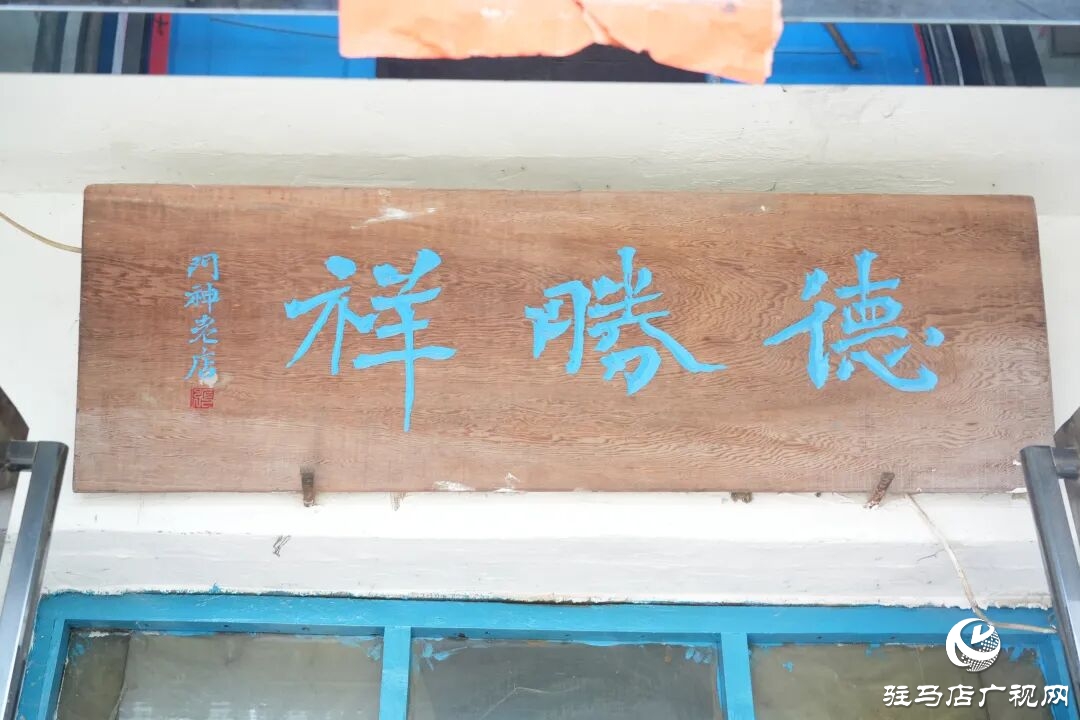 德勝祥
阿神老店
驻马店广视网